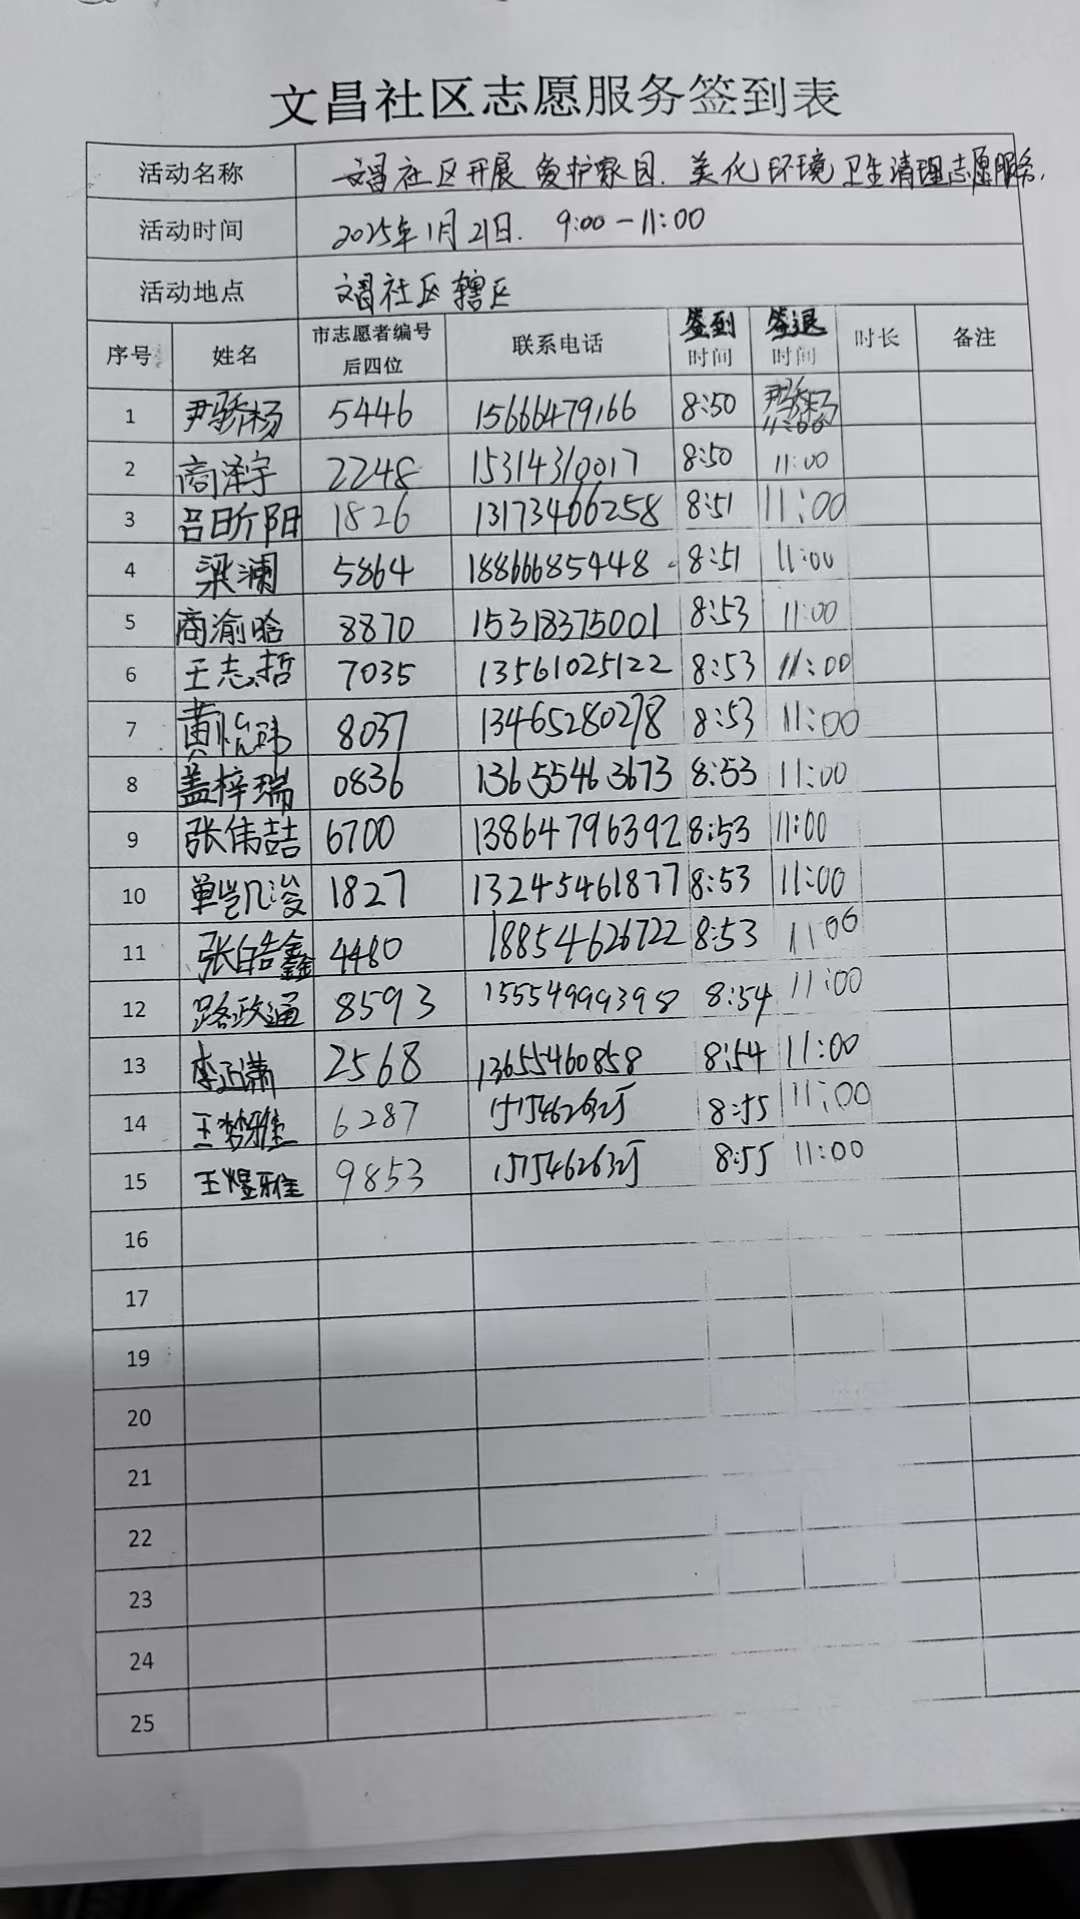 文昌社区志愿服务签到表
活动名称 文昌社区开展爱护家园.美化环境卫生清理志愿服务.
活动时间 2025年1月21日. 9:00-11:00
活动地点 文昌社区辖区
序号 姓名 市志愿者编号后四位 联系电话 签到时间 签退时间 时长 备注
1 尹骄杨 5446 15666479166 8:50 尹骄杨 11:00
2 商泽宇 2248 15314310017 8:50 11:00
3 吕昕阳 1826 13173466258 8:51 11:00
4 梁澜 5864 18866685448 8:51 11:00
5 商渝晗 8870 15318375001 8:53 11:00
6 王志哲 7035 13561025122 8:53 11:00
7 黄怡玮 8037 13465280278 8:53 11:00
8 盖梓瑞 0836 13655463673 8:53 11:00
9 张伟喆 6700 13864796392 8:53 11:00
10 单凯浚 1827 13245461877 8:53 11:00
11 张皓鑫 4480 18854626722 8:53 11:00
12 路政通 8593 15554999398 8:54 11:00
13 李正潇 2568 13655460858 8:54 11:00
14 王梦雅 6287 8:55 11:00
15 王煜雅 9853 8:55 11:00
16
17
19
20
21
22
23
24
25